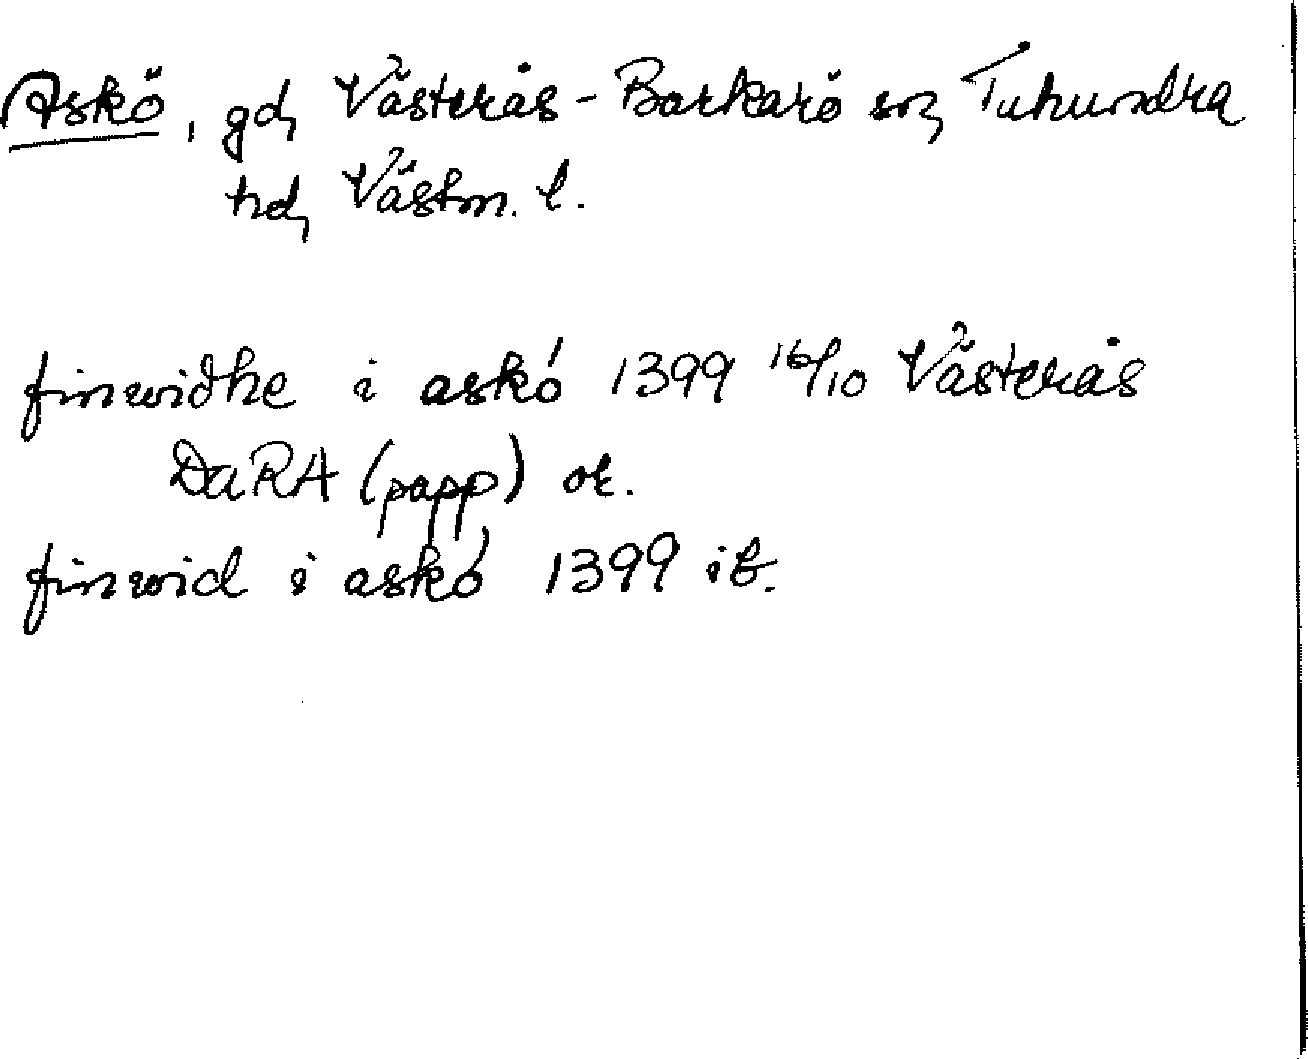 Askö, gd, Västerås-Barkarö sn, Tuhundra
hd, Västm. l.
finwidhe i askó 1399 16/10 Västerås
DaRA (papp) or.
finwid i askó 1399 ib.